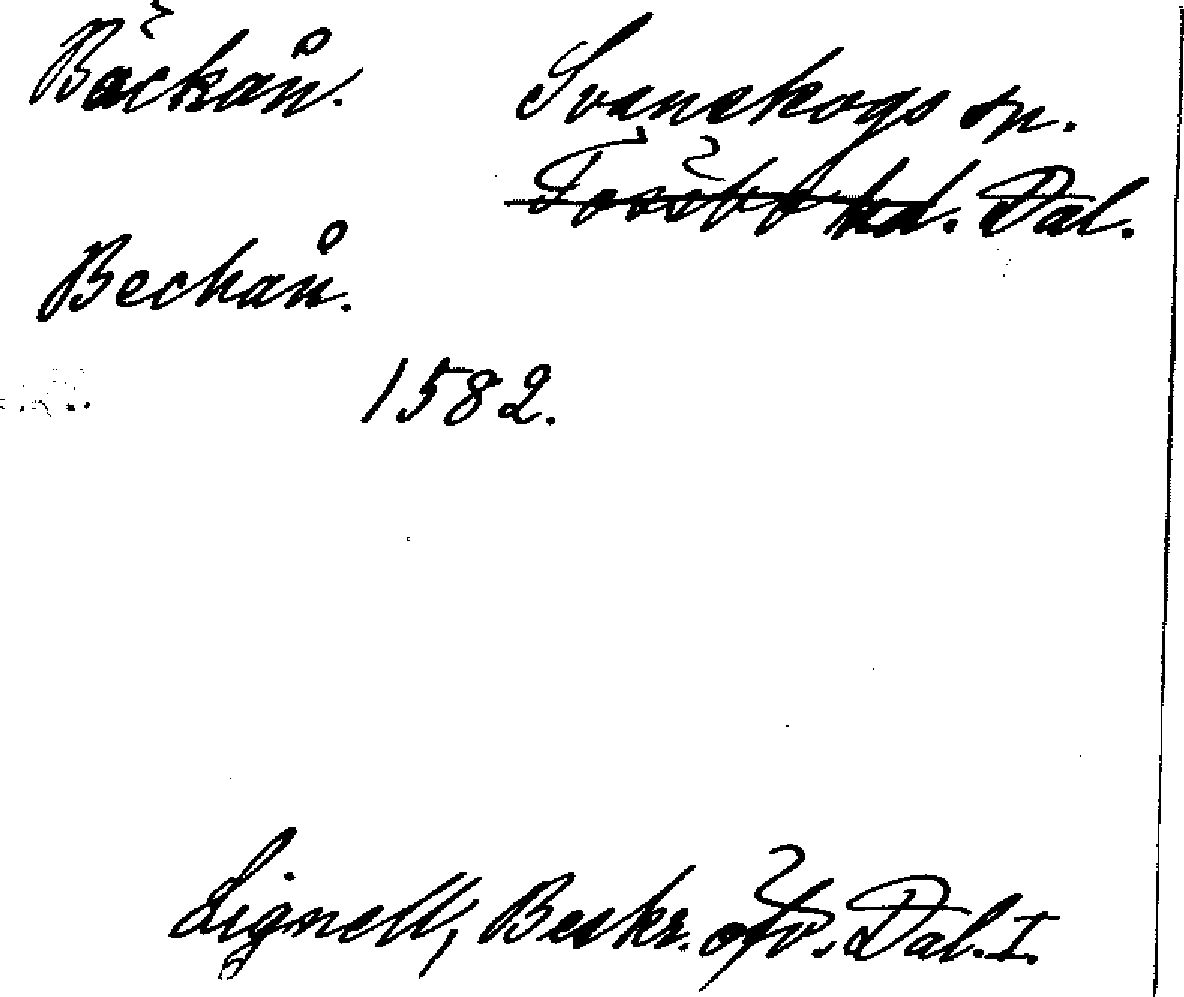 Bäckån. Svanskogs sn.
Tössbo hd. Dal.
Beckån.
1582.
Lignell, Beskr. öfv. Dal. I.